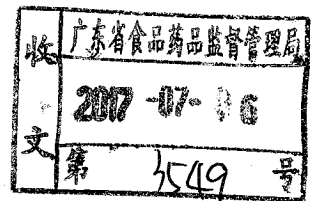 收文
广东省食品药品监督管理局
2017-07-06
第 3549 号